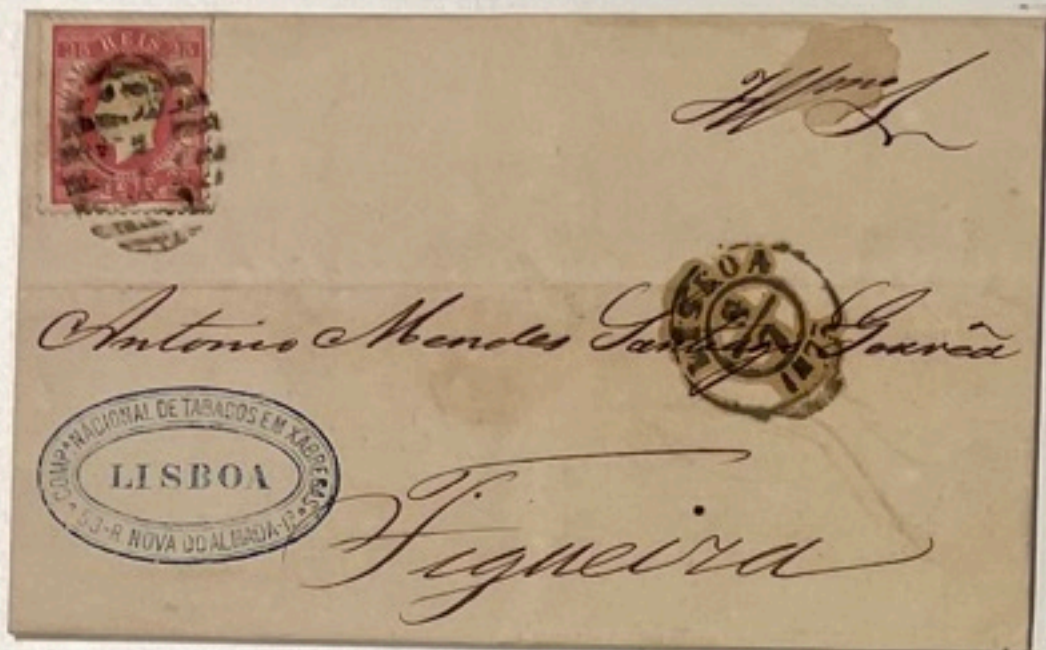 25 REIS 25
Illmo Sr
LISBOA
Antonio Mendes Santiago Gouvêa
COMPª NACIONAL DE TABACOS EM XABREGAS
LISBOA
53-R. NOVA DO ALMADA-1º
Figueira